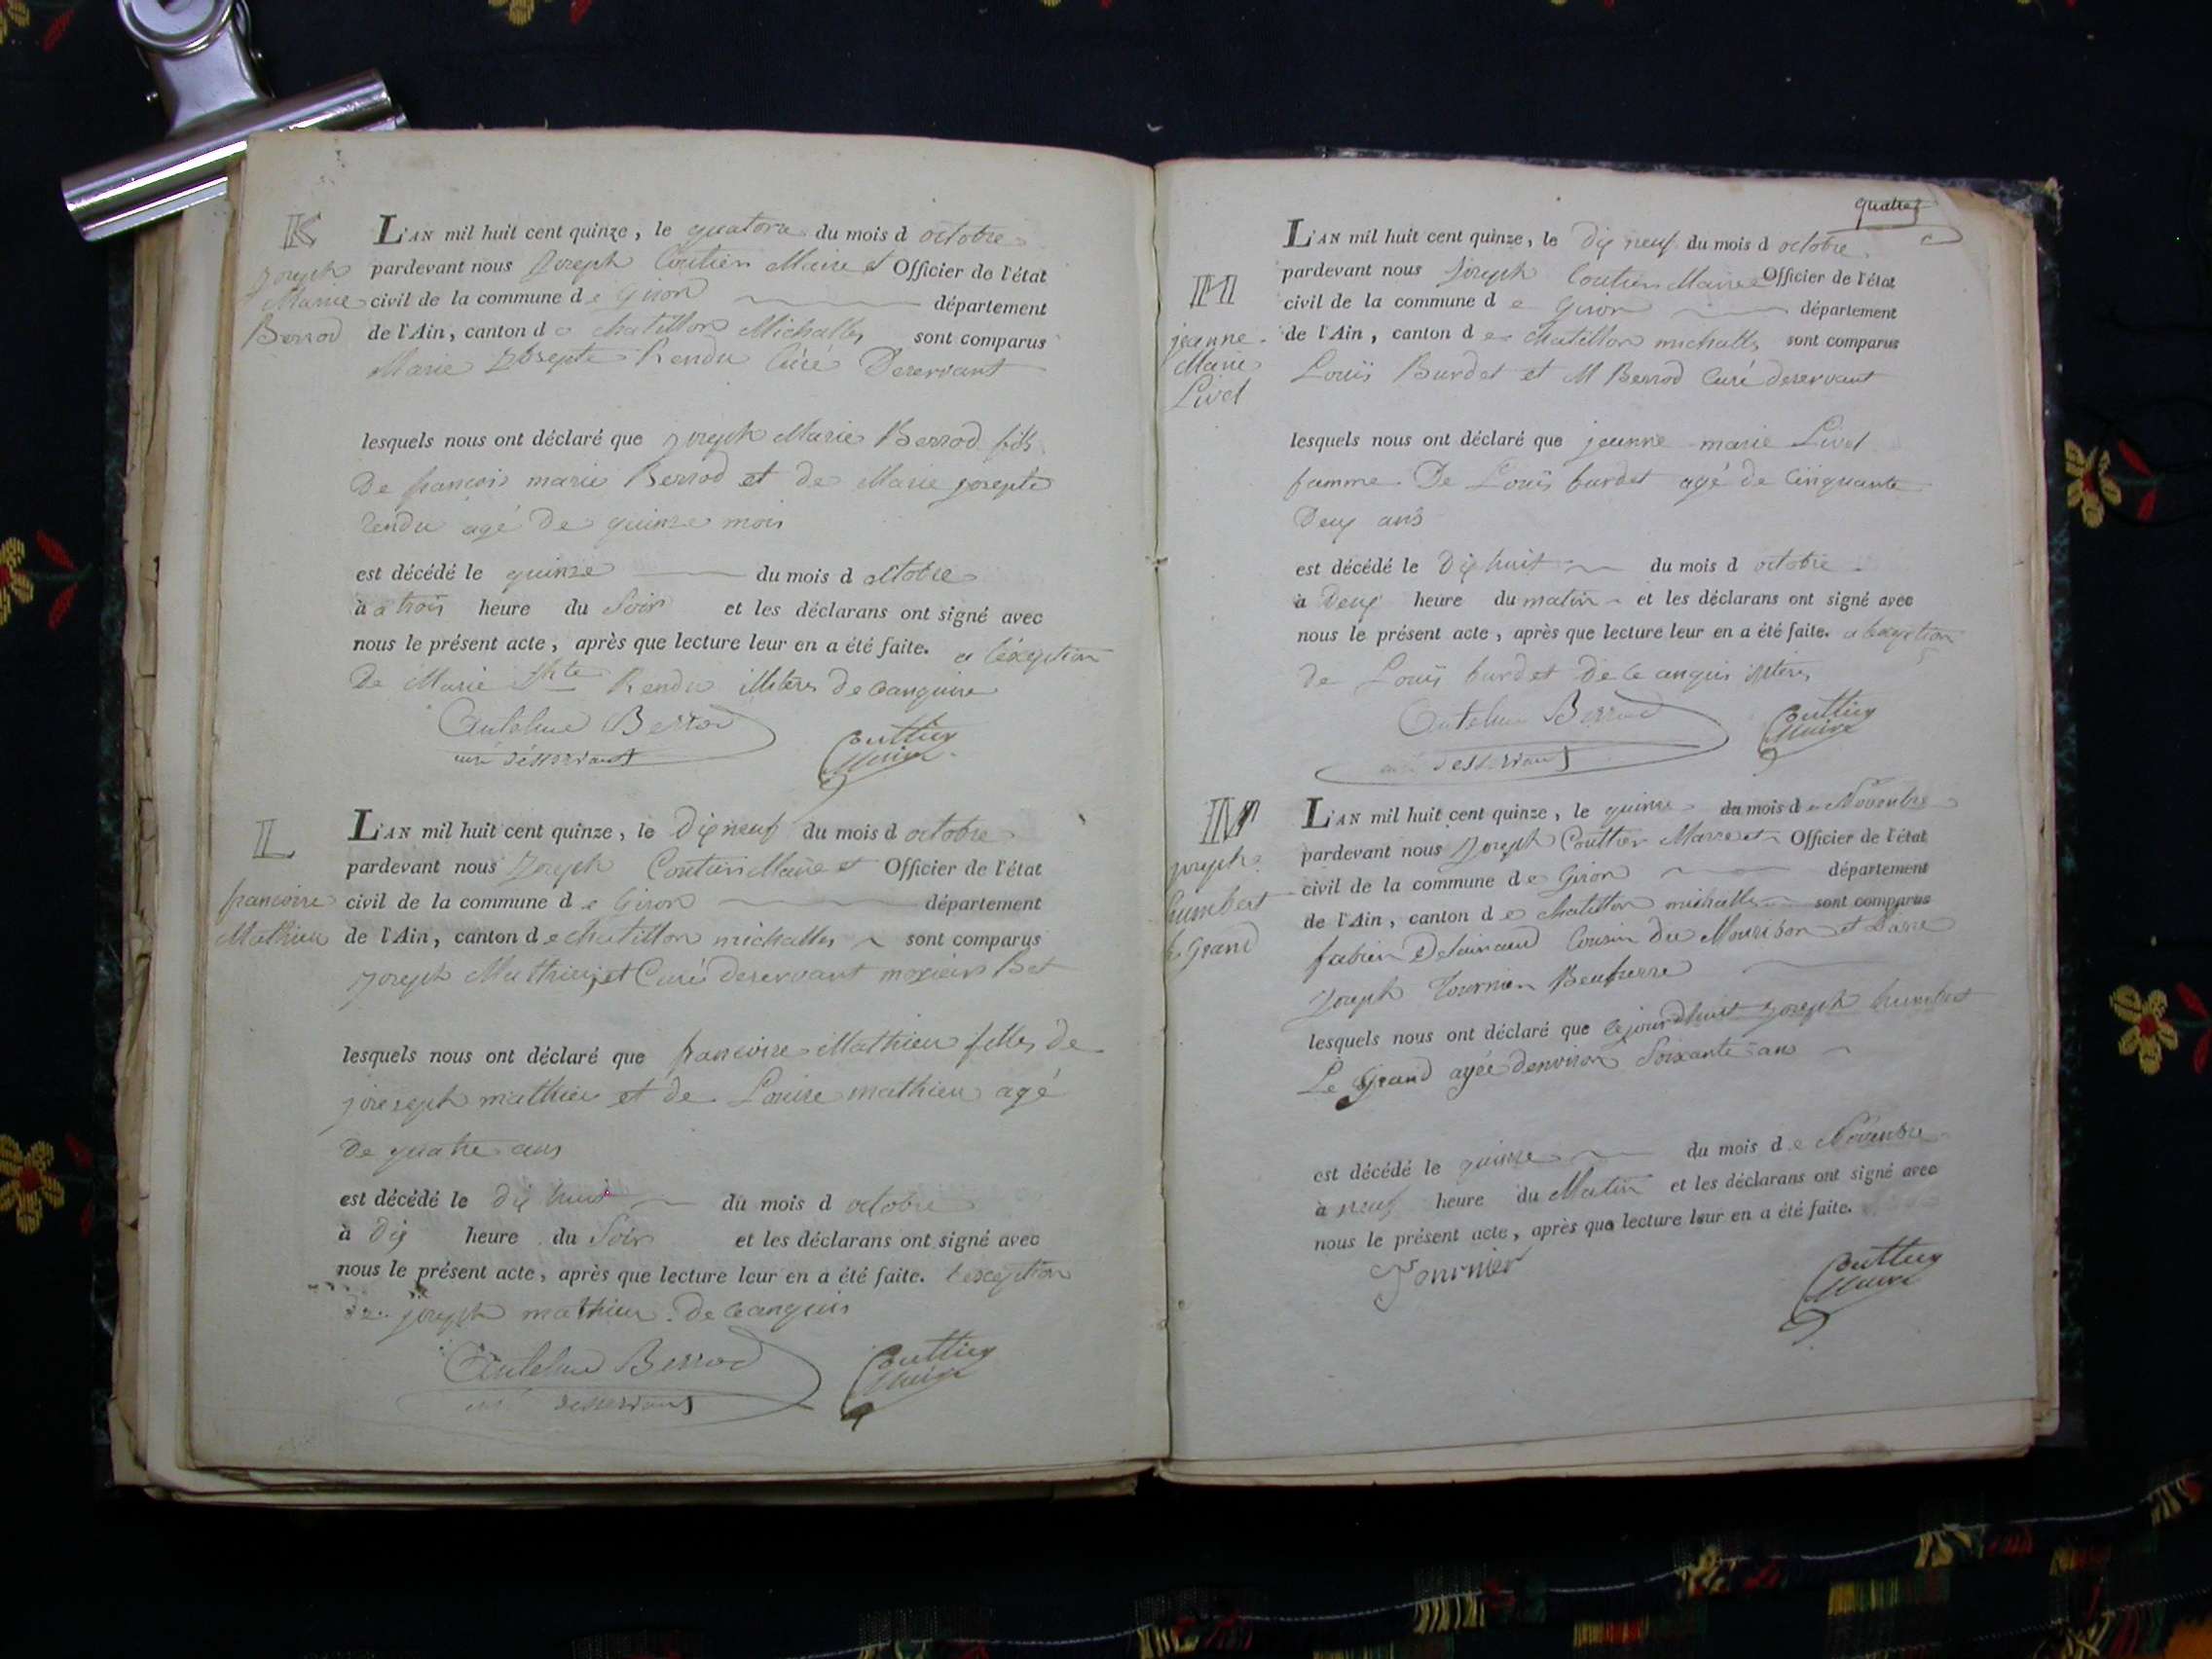 K
Joseph
Marie
Berrod
L'AN mil huit cent quinze, le quatorze du mois d octobre
pardevant nous Joseph Coutier Maire et Officier de l'état
civil de la commune de Giron département
de l'Ain, canton de chatillon Michalles sont comparus
Marie Josepte Rendu Curé Deservant
lesquels nous ont déclaré que joseph Marie Berrod fils
De francois marie Berrod et de Marie josepte
rendu agé De quinze mois
est décédé le quinze du mois d octobre
à a trois heure du Soir et les déclarans ont signé avec
nous le présent acte, après que lecture leur en a été faite. a l'éxeption
De Marie Jhte Rendu
Antelme Berrod
curé désservant
Couttier
Maire
L
francoise
Mathieu
L'AN mil huit cent quinze, le Dixneuf du mois d octobre
pardevant nous Joseph Coutier Maire et Officier de l'état
civil de la commune de Giron département
de l'Ain, canton de chatillon michalles sont comparus
joseph Mathieu et Curé deservant
lesquels nous ont déclaré que francoise Mathieu filles de
joreseph mathieu et de Louise mathieu agé
De quatre ans
est décédé le dix huit du mois d octobre
à Dix heure du Soir et les déclarans ont signé avec
nous le présent acte, après que lecture leur en a été faite. l'exception
De joseph mathieu de ce anquis
Antelme Berrod
curé desservant
Couttier
Maire
quatre
M
jeanne
Marie
Livet
L'AN mil huit cent quinze, le Dix neuf du mois d octobre
pardevant nous Joseph Coutier Maire Officier de l'état
civil de la commune de Giron département
de l'Ain, canton de chatillon michalles sont comparus
Louïs Burdet et M Berrod Curé deservant
lesquels nous ont déclaré que jeanne marie Livet
famme De Louïs burdet agé de Cinquante
Deux ans
est décédé le Dix huit du mois d octobre
à Deux heure du matin et les déclarans ont signé avec
nous le présent acte, après que lecture leur en a été faite. a lexception
de Louïs burdet de ce anquis
Antelme Berrod
curé desservant
Couttier
Maire
N
joseph
humbert
le Grand
L'AN mil huit cent quinze, le quinze du mois de Novembre
pardevant nous Joseph Couttier Maire et Officier de l'état
civil de la commune de Giron département
de l'Ain, canton de chatillon michalles sont comparus
fabien Cousin du et
Joseph Tournier
lesquels nous ont déclaré que cejourdhuit joseph humbert
Le Grand agée denviron Soixante an
est décédé le quinze du mois de Novembre
à neuf heure du Matin et les déclarans ont signé avec
nous le présent acte, après que lecture leur en a été faite.
Tournier
Couttier
Maire